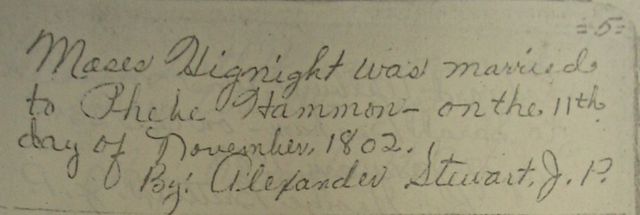 =5=
Moses Hignight was married
to Phebe Hammon - on the 11th
day of November, 1802.
By: Alexander Stewart, J. P.